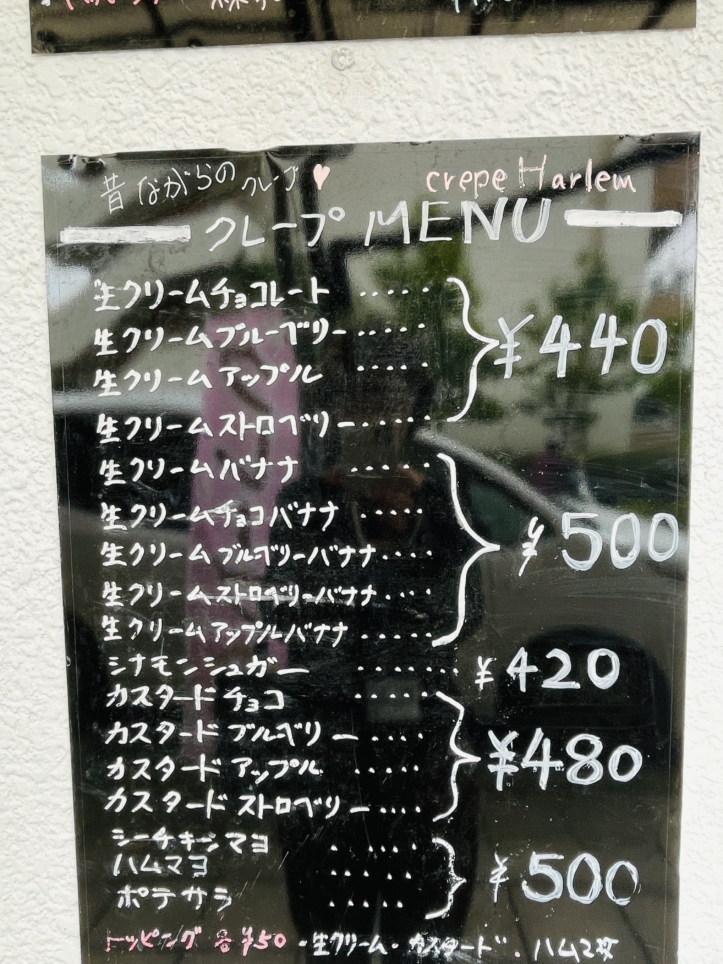 昔ながらのクレープ♥ crepe Harlem
クレープ MENU
生クリームチョコレート ・・・・・
生クリームブルーベリー・・・・・
生クリームアップル ・・・・・ ¥440
生クリームストロベリー・・・・・
生クリームバナナ ・・・・・
生クリームチョコバナナ ・・・・・
生クリームブルーベリーバナナ・・・・ ¥500
生クリームストロベリーバナナ・・・・
生クリームアップルバナナ ・・・・・
シナモンシュガー ・・・・・・・ ¥420
カスタードチョコ ・・・・・
カスタードブルーベリー・・・・
カスタードアップル ・・・・・ ¥480
カスタードストロベリー・・・・
シーチキンマヨ ・・・・・
ハムマヨ ・・・・・
ポテサラ ・・・・・ ¥500
トッピング 各¥50 ・生クリーム・カスタード・ハム2枚